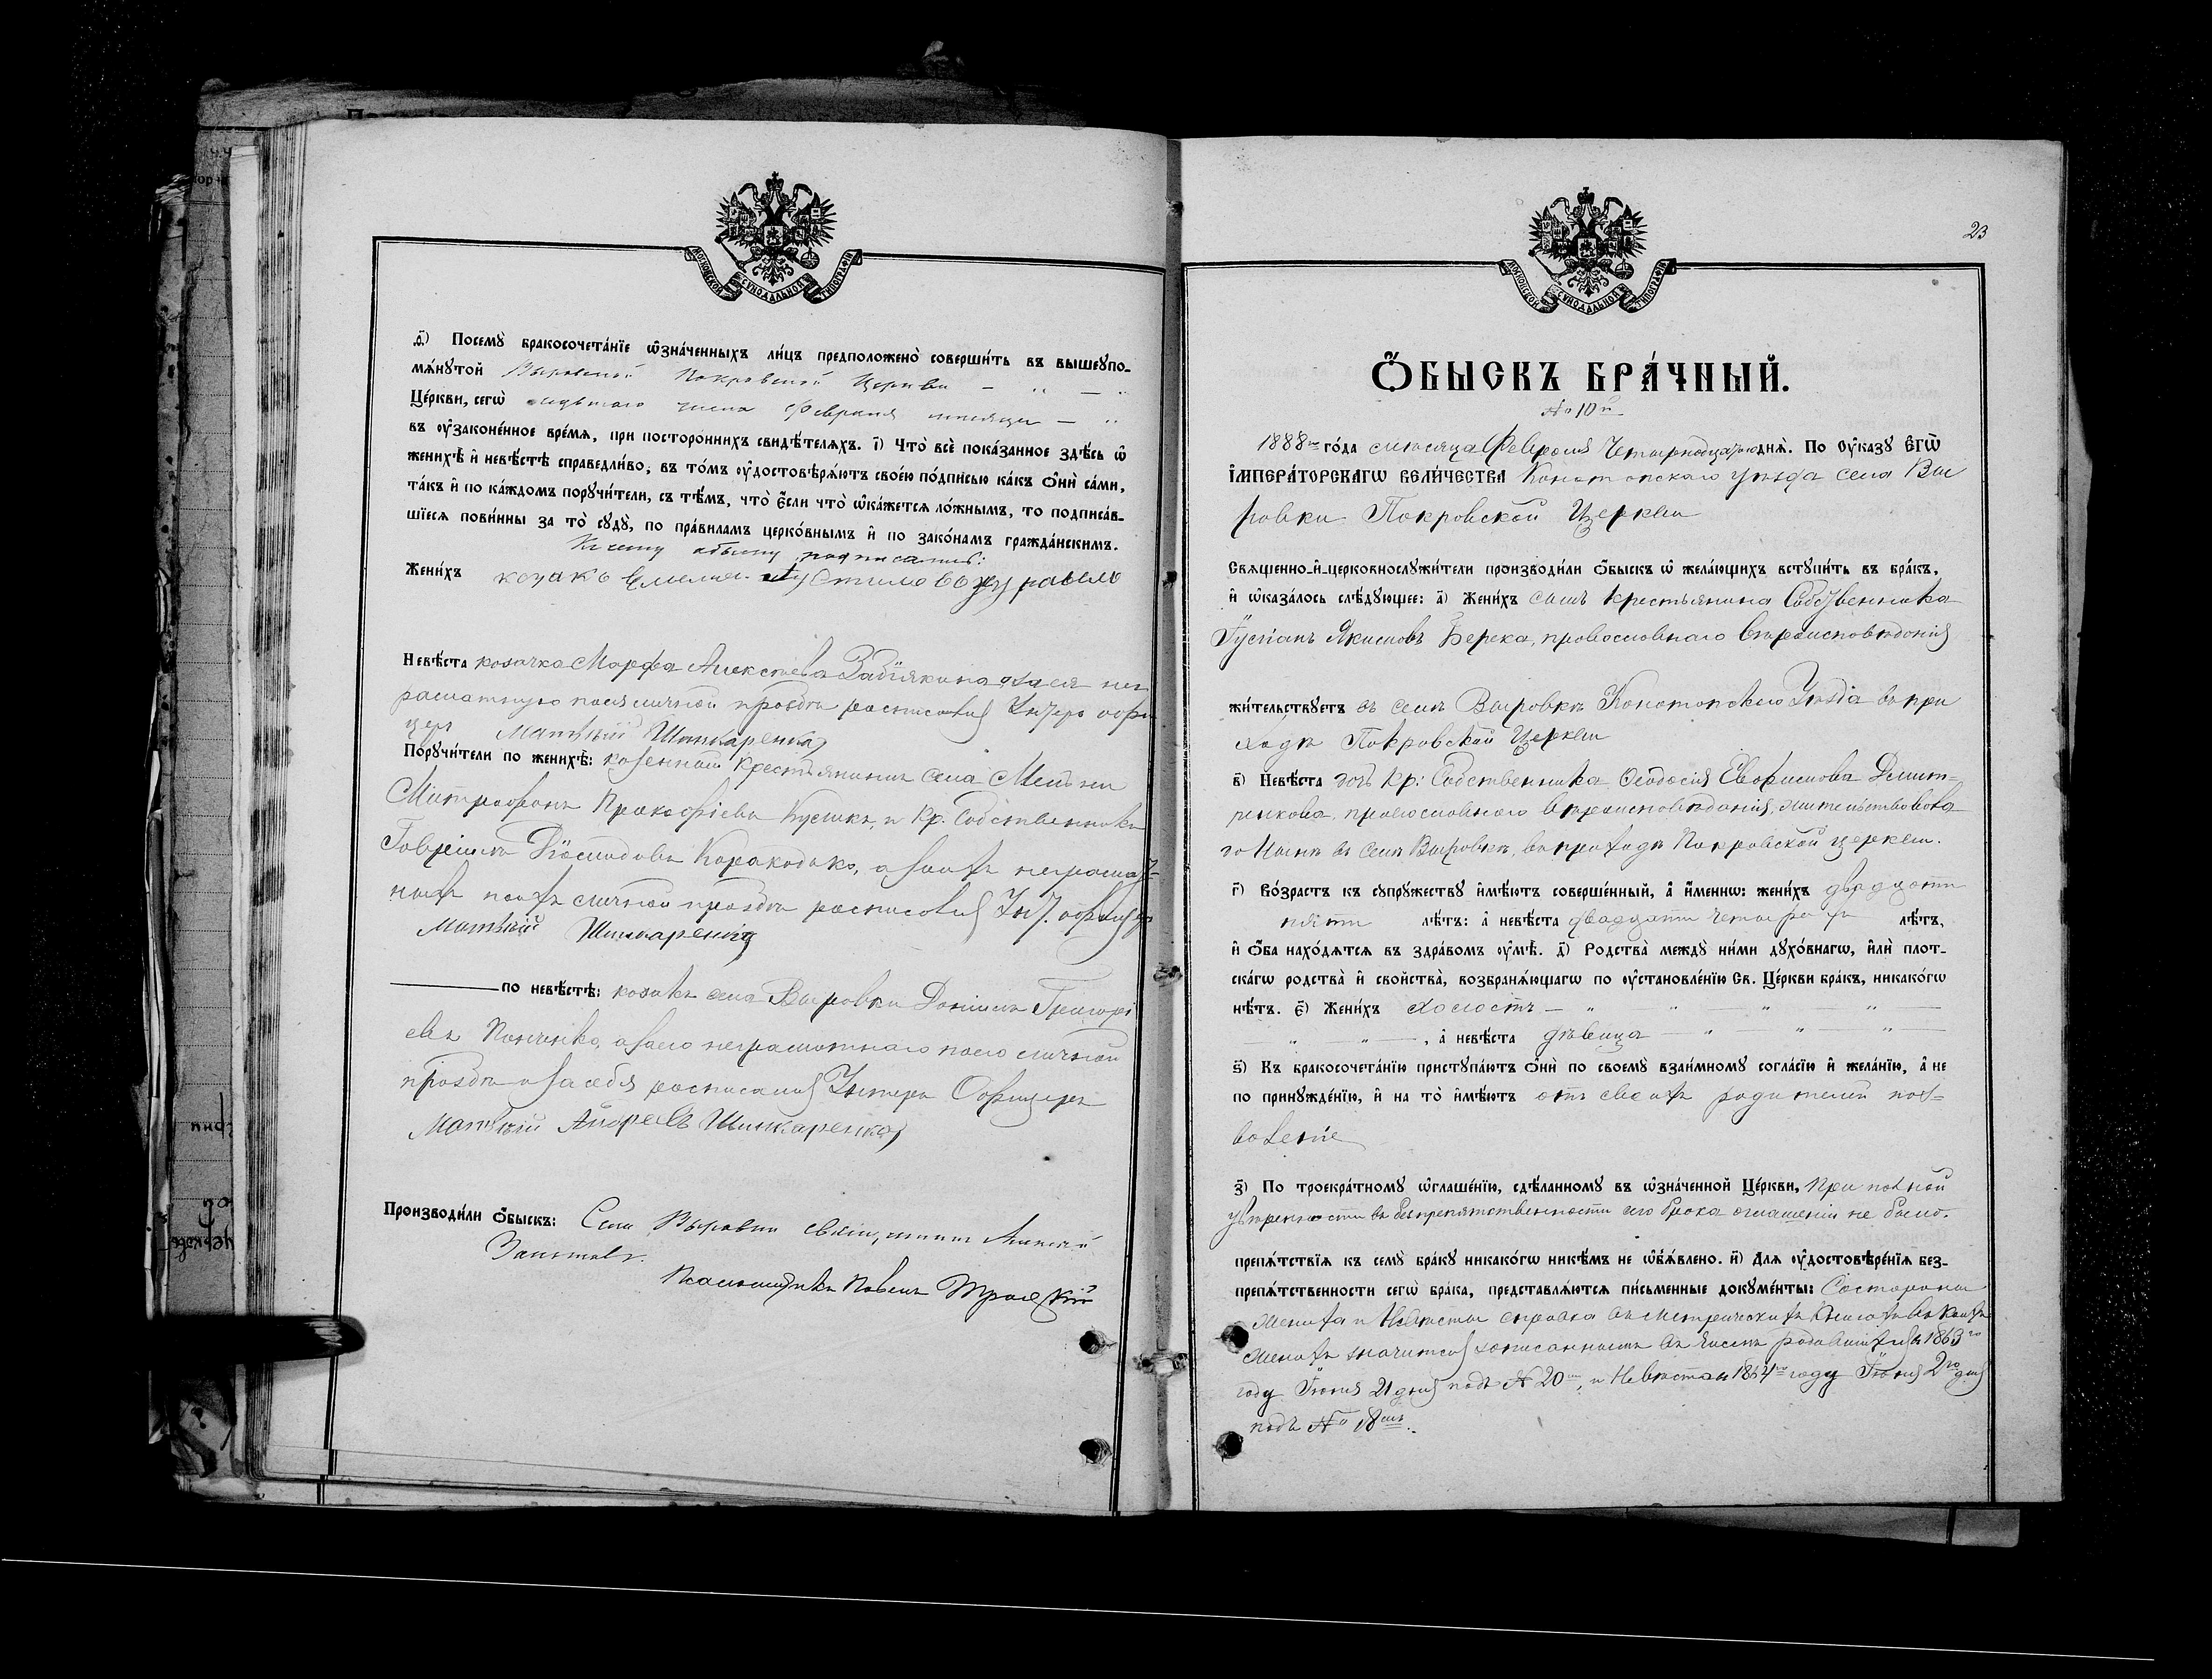 МОСКОВСКОЙ СѴНОДАЛЬНОЙ ТИПОГРАФІИ
д҃і) Посемꙋ̀ бракосочета́нїе ѡ҆зна́ченныхъ ли́цъ предположено̀ соверши́ть въ вышеꙋпо-
мѧ́нꙋтой Выровской Покровской Церкви
Це́ркви, сегѡ̀ числа Февраля месяца
въ ᲂу҆законе́нное вре́мѧ, при посторо́ннихъ свидѣ́телѧхъ. і҃) Что̀ всѐ пока́занное здѣ́сь ѡ҆
женихѣ̀ и҆ невѣ́стѣ справедли́во, въ то́мъ ᲂу҆достовѣрѧ́ютъ свое́ю по́дписью ка́къ ѻ҆нѝ са́ми,
та́къ и҆ по ка́ждомъ порꙋчи́тели, съ тѣ́мъ, что̀ є҆́сли что̀ ѡ҆ка́жетсѧ ло́жнымъ, то подписа́в-
шїесѧ пови́нны за то̀ сꙋдꙋ̀, по пра́виламъ церко́внымъ и҆ по зако́намъ гражда́нскимъ.
К сему обыску подписались:
Жени́хъ козакъ Емельян
Невѣ́ста козачка Марфа Алексеева а за ея не
грамотную по ея личной прозбѣ росписался Унтеръ офи
церъ Матвѣй Шинкаренко
Порꙋчи́тели по женихѣ̀: казенный Крестьянинъ села
Митрофанъ Прокофіевъ и Кр. Собственникъ
Гавріилъ а за ихъ неграмот-
ныхъ по ихъ личной прозбѣ росписался Ун. офицеръ
Матвѣй Шинкаренко
по невѣ́стѣ: козакъ села Выровки Даніилъ Григорі
евъ а за его неграмотнаго по его личной
прозбѣ и за себя росписался Унтеръ Офицеръ
Матвѣй Андреевъ Шинкаренко
Производи́ли ѻ҆бы́скъ: Села Выровки священникъ
Псаломщикъ Павелъ
23
МОСКОВСКОЙ СѴНОДАЛЬНОЙ ТИПОГРАФІИ
Ѻ҆БЫСКЪ БРА́ЧНЫЙ.
№ 10й
1888го го́да месяца Февраля Четырнадцатаго днѧ̀. По ᲂу҆ка́зꙋ Є҆ГѠ̀
І҆МПЕРА́ТОРСКАГѠ ВЕЛИ́ЧЕСТВА Конотопскаго уѣзда села Вы
ровки Покровской Церкви
Свѧщенно-и҆-церковнослꙋжи́тели производи́ли ѻ҆бы́скъ ѡ҆ жела́ющихъ встꙋпи́ть въ бра́къ,
и҆ ѡ҆каза́лось слѣ́дꙋющее: а҃) Жени́хъ сынъ крестьянина Собственника
Якимовъ Берека, православнаго Вѣроисповѣданія
жи́тельствꙋетъ въ селѣ Выровкѣ Конотопскаго Уѣзда въ при
ходѣ Покровской Церкви
в҃) Невѣ́ста дочь Кр: Собственника Феодосія Евфимова Дмит-
ренкова, православнаго Вѣроисповѣданія, жительствовала
до нынѣ въ селѣ Выровкѣ, въ приходѣ Покровской церкви.
г҃) Во́зрастъ къ сꙋпрꙋ́жествꙋ и҆мѣ́ютъ соверше́нный, а҆ и҆́менно: жени́хъ двадцати
пяти лѣ́тъ: а҆ невѣ́ста двадцати четырехъ лѣ́тъ,
и҆ ѻ҆́ба нахо́дѧтсѧ въ здра́вомъ ᲂу҆мѣ̀. д҃) Родства̀ междꙋ̀ ни́ми дꙋхо́внагѡ, и҆лѝ плот-
ска́гѡ родства̀ и҆ сво́йства̀, возбранѧ́ющагѡ по ᲂу҆становле́нїю Св. Це́ркви бра́къ, никако́гѡ
нѣ́тъ. є҃) Жени́хъ холостъ
, а҆ невѣ́ста дѣвица
ѕ҃) Къ бракосочета́нїю пристꙋпа́ютъ ѻ҆нѝ по своемꙋ̀ взаи́мномꙋ согла́сїю и҆ жела́нїю, а҆ не
по принꙋжде́нїю, и҆ на то̀ и҆мѣ́ютъ отъ своихъ родителей поз-
воленіе
з҃) По троекра́тномꙋ ѡ҆глаше́нїю, сдѣ́ланномꙋ въ ѡ҆зна́ченной Це́ркви, при полной
увѣренности въ безпрепятственности сего брака оглашенія не было.
препѧ́тствїѧ къ семꙋ̀ бра́кꙋ никако́гѡ никѣ́мъ не ѡ҆б̾ѧ́влено. и҃) Длѧ ᲂу҆достовѣре́нїѧ без-
препѧ́тственности сегѡ̀ бра́ка, представлѧ́ютсѧ пи́сьменные докꙋме́нты: Со стороны
жениха и Невѣсты справка въ Метрическихъ книгахъ въ коихъ
женихъ значится записаннымъ въ числѣ родившихся 1863го
году Іюня 21 дня подъ № 20мъ, и Невѣста 1864го году Іюня 2го дня
подъ № 18мъ.